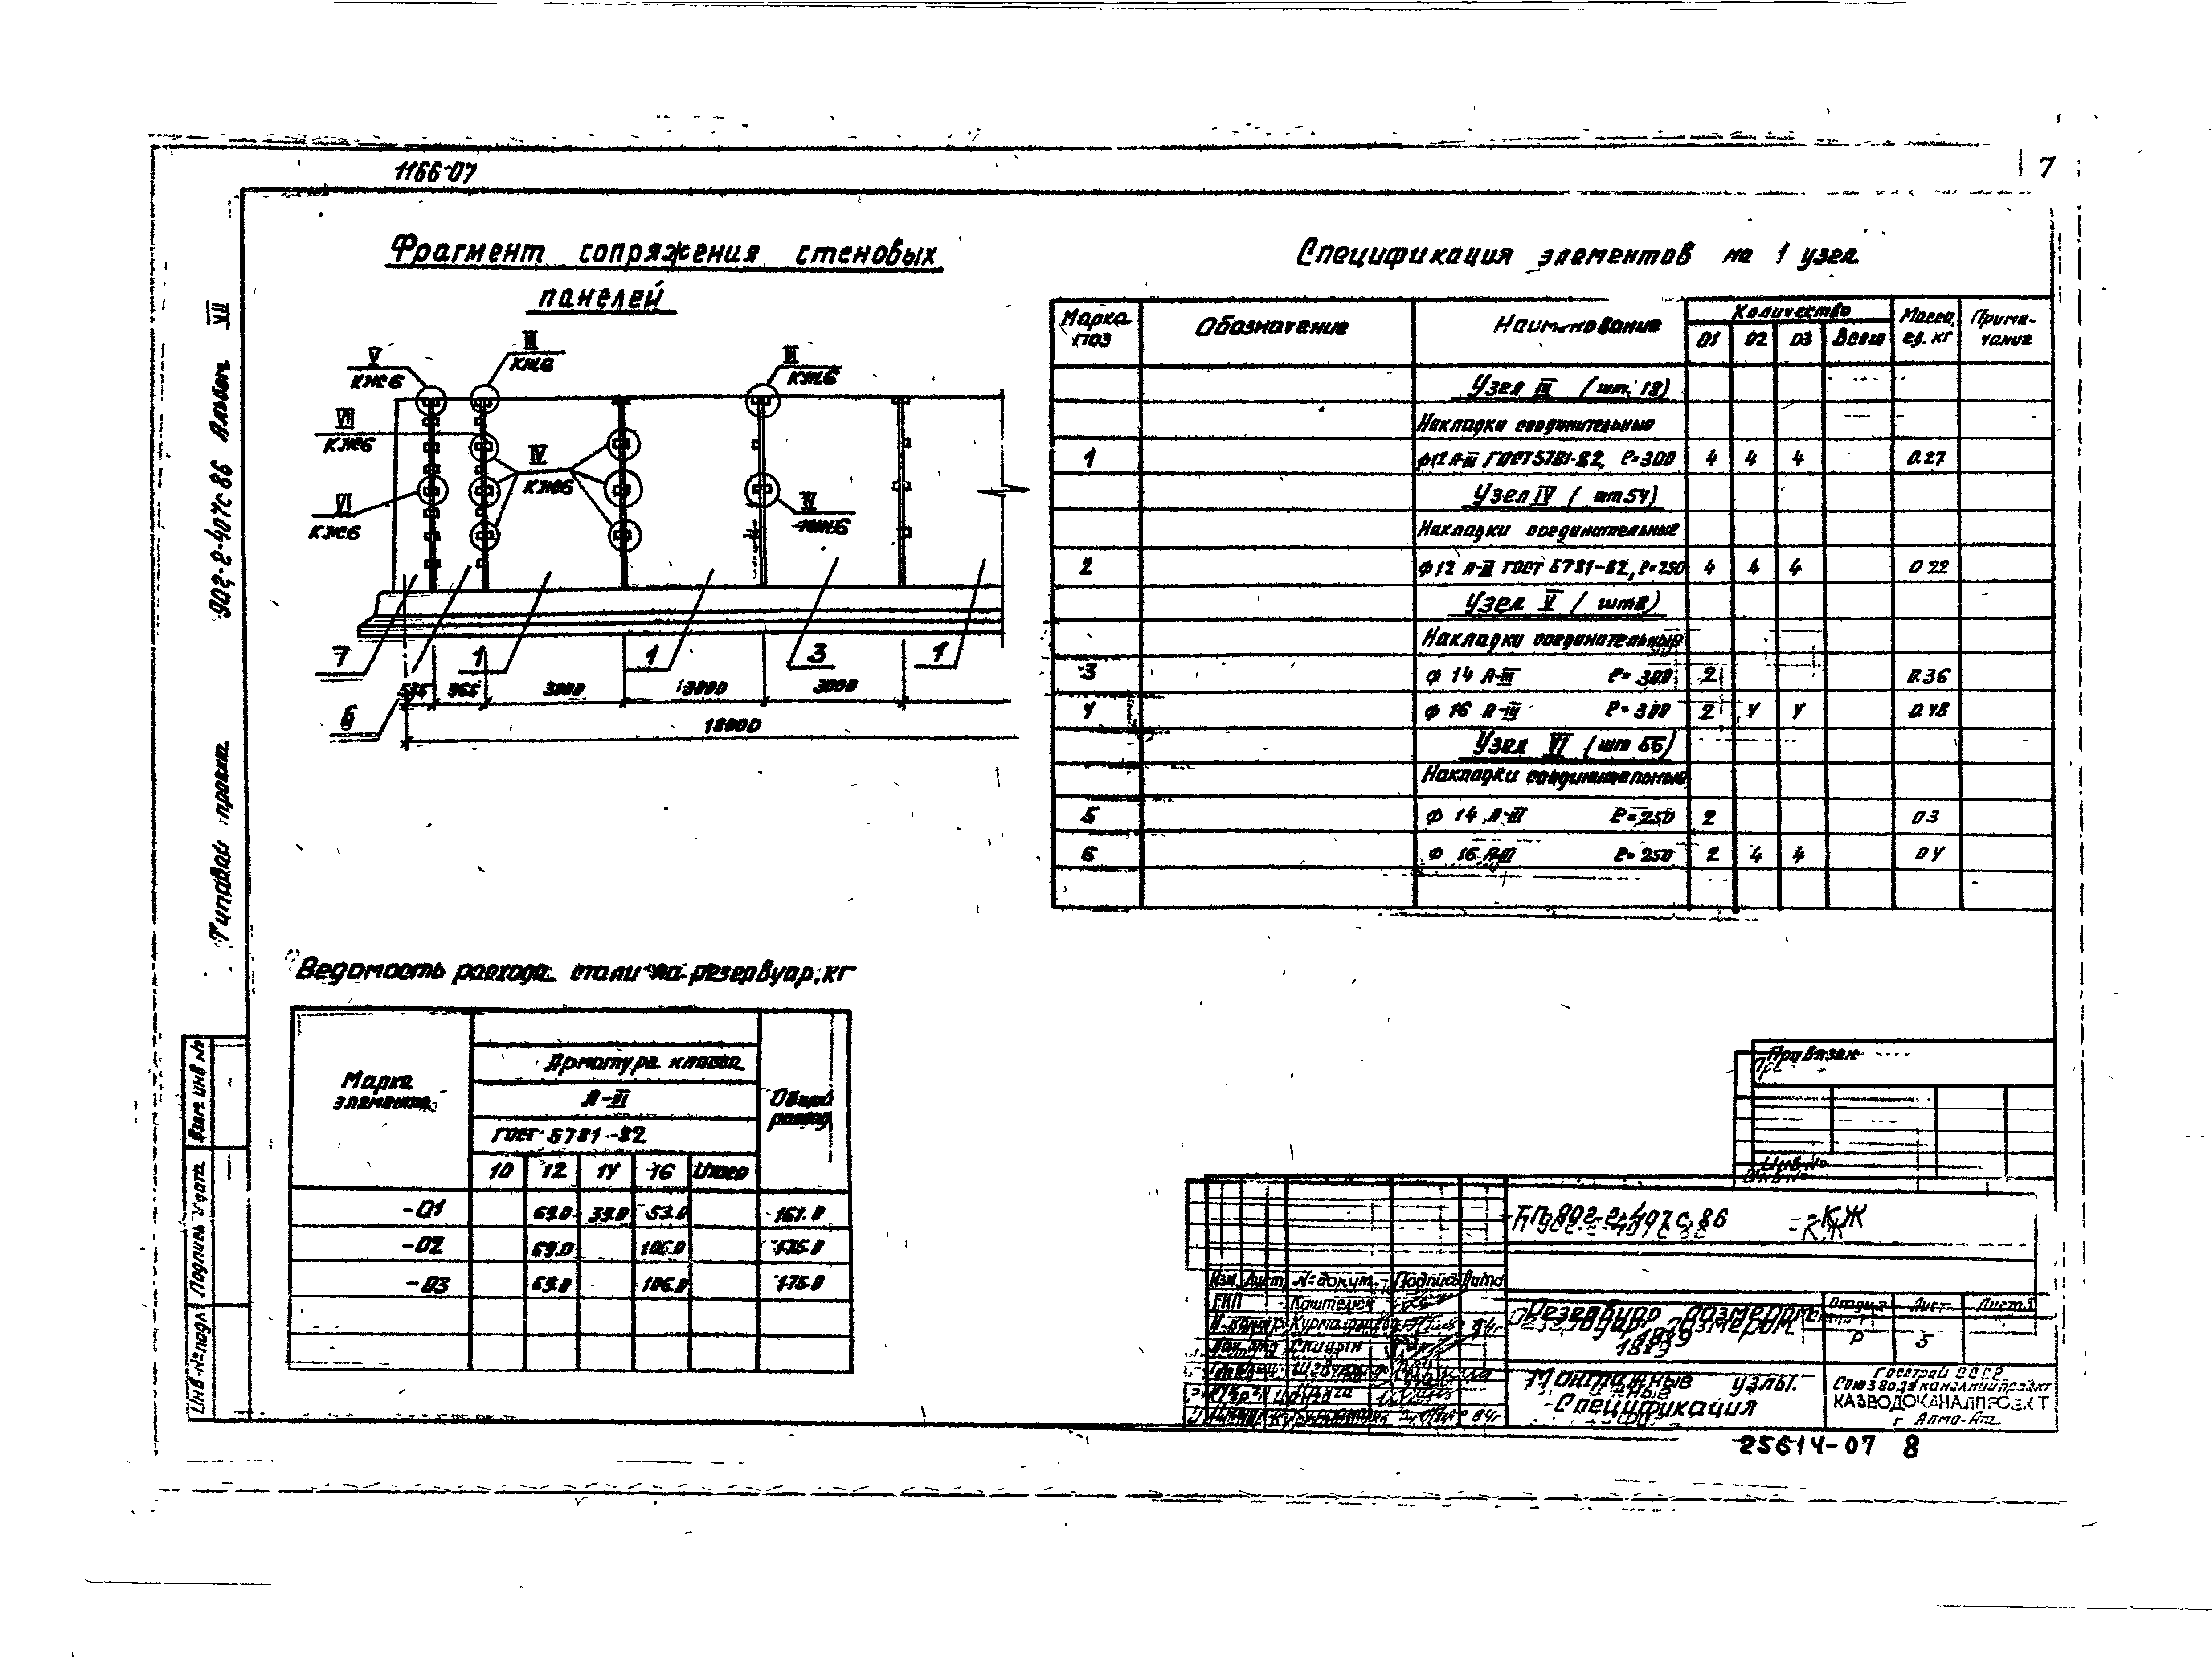 1166-07
7
Фрагмент сопряжения стеновых
панелей
V
КЖ6
III
КЖ6
III
КЖ6
VII
КЖ6
IV
КЖ6
VI
КЖ6
IV
КЖ6
7
1
1
3
1
6
535 965 3000 3000 3000
18000
Спецификация элементов на 1 узел
Марка поз
Обозначение
Наименование
Количество
01 02 03 Всего
Масса, ед. кг
Примечание
Узел III (шт. 18)
Накладки соединительные
1 ф12 А-III ГОСТ 5781-82, ℓ=300 4 4 4 0.27
Узел IV (шт 54)
Накладки соединительные
2 ф12 А-III ГОСТ 5781-82, ℓ=250 4 4 4 0 22
Узел V (шт 8)
Накладки соединительные
3 ф 14 А-III ℓ=300 2 0.36
4 ф 16 А-III ℓ=300 2 4 4 0.48
Узел VI (шт 56)
Накладки соединительные
5 ф 14 А-III ℓ=250 2 0 3
6 ф 16 А-III ℓ=250 2 4 4 0 4
Ведомость расхода стали на резервуар, кг
Марка элемента
Арматура класса
А-III
ГОСТ 5781-82
10 12 14 16 Итого
Общий расход
-01 69.0 39.0 53.0 161.0
-02 69.0 106.0 175.0
-03 69.0 106.0 175.0
Типовой проект 902-2-407с 86 Альбом VII
Взам. инв №
Подпись и дата
Инв. № подл.
Привязан
Инв №
ТП 902-2-407с.86 -КЖ
Изм Лист № докум. Подпись Дата
ГИП
Резервуар размером
18х9
Лист
Р 5
Монтажные узлы.
Спецификация
Госстрой СССР
Союзводоканалниипроект
КАЗВОДОКАНАЛПРОЕКТ
г Алма-Ата
25614-07 8